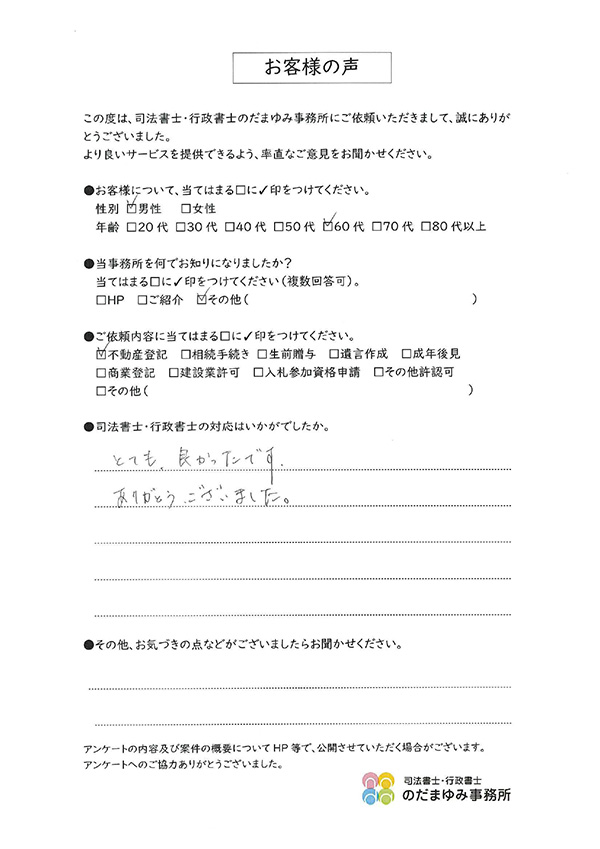 お客様の声
この度は、司法書士・行政書士のだまゆみ事務所にご依頼いただきまして、誠にありが
とうございました。
より良いサービスを提供できるよう、率直なご意見をお聞かせください。
●お客様について、当てはまる□に✓印をつけてください。
性別 ☑男性 □女性
年齢 □20代 □30代 □40代 □50代 ☑60代 □70代 □80代以上
●当事務所を何でお知りになりましたか？
当てはまる□に✓印をつけてください（複数回答可）。
□HP □ご紹介 ☑その他（ ）
●ご依頼内容に当てはまる□に✓印をつけてください。
☑不動産登記 □相続手続き □生前贈与 □遺言作成 □成年後見
□商業登記 □建設業許可 □入札参加資格申請 □その他許認可
□その他（ ）
●司法書士・行政書士の対応はいかがでしたか。
とても、良かったです.
ありがとうございました。
●その他、お気づきの点などがございましたらお聞かせください。
アンケートの内容及び案件の概要についてHP等で、公開させていただく場合がございます。
アンケートへのご協力ありがとうございました。
司法書士・行政書士
のだまゆみ事務所